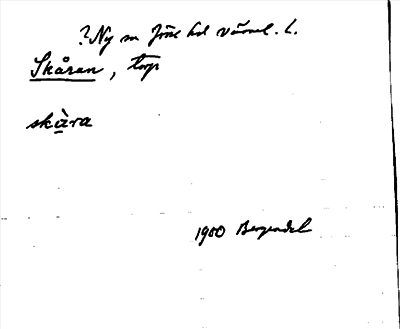 ? Ny sn Jösse hd Värml. l.
Skåran, torp
skàra
1900 Bergendal